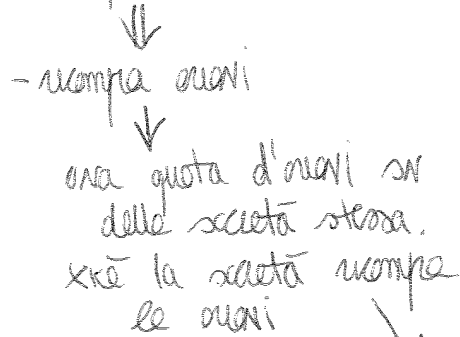 - ricompra azioni
una quota d'azioni
della società stessa.
xkè la società ricompra
le azioni